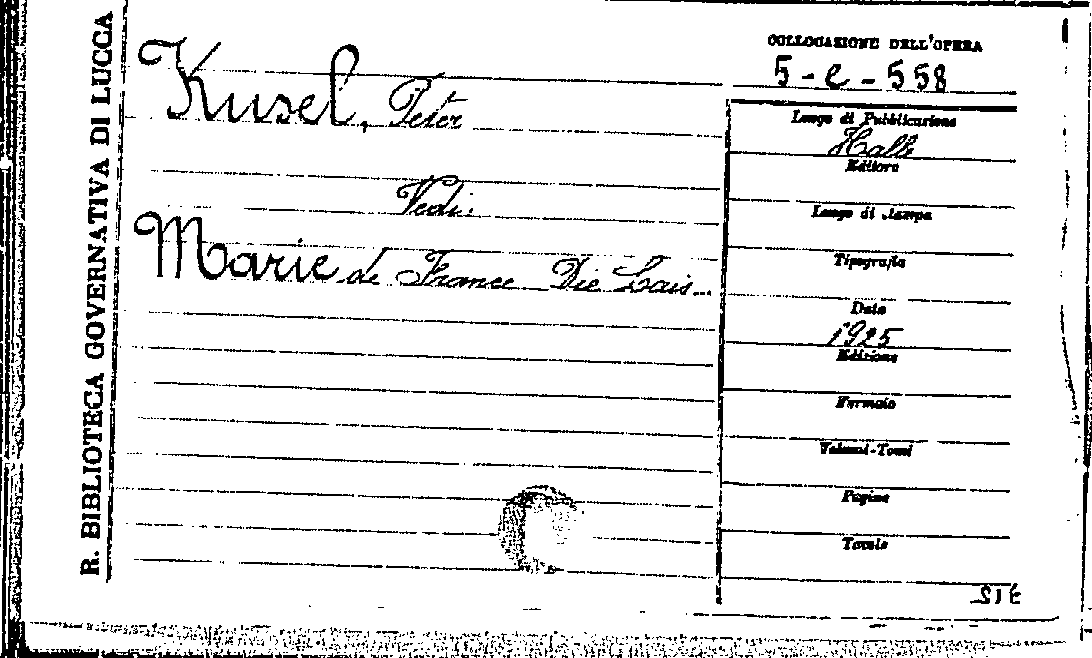 R. BIBLIOTECA GOVERNATIVA DI LUCCA
COLLOCAZIONE DELL'OPERA
5-e-558
Kusel, Peter
Luogo di Pubblicazione
Halle
Editore
Vedi:
Luogo di stampa
Marie de France Die Lais...
Tipografia
Data
1925
Edizione
Formato
Volumi-Tomi
Pagine
Tavole